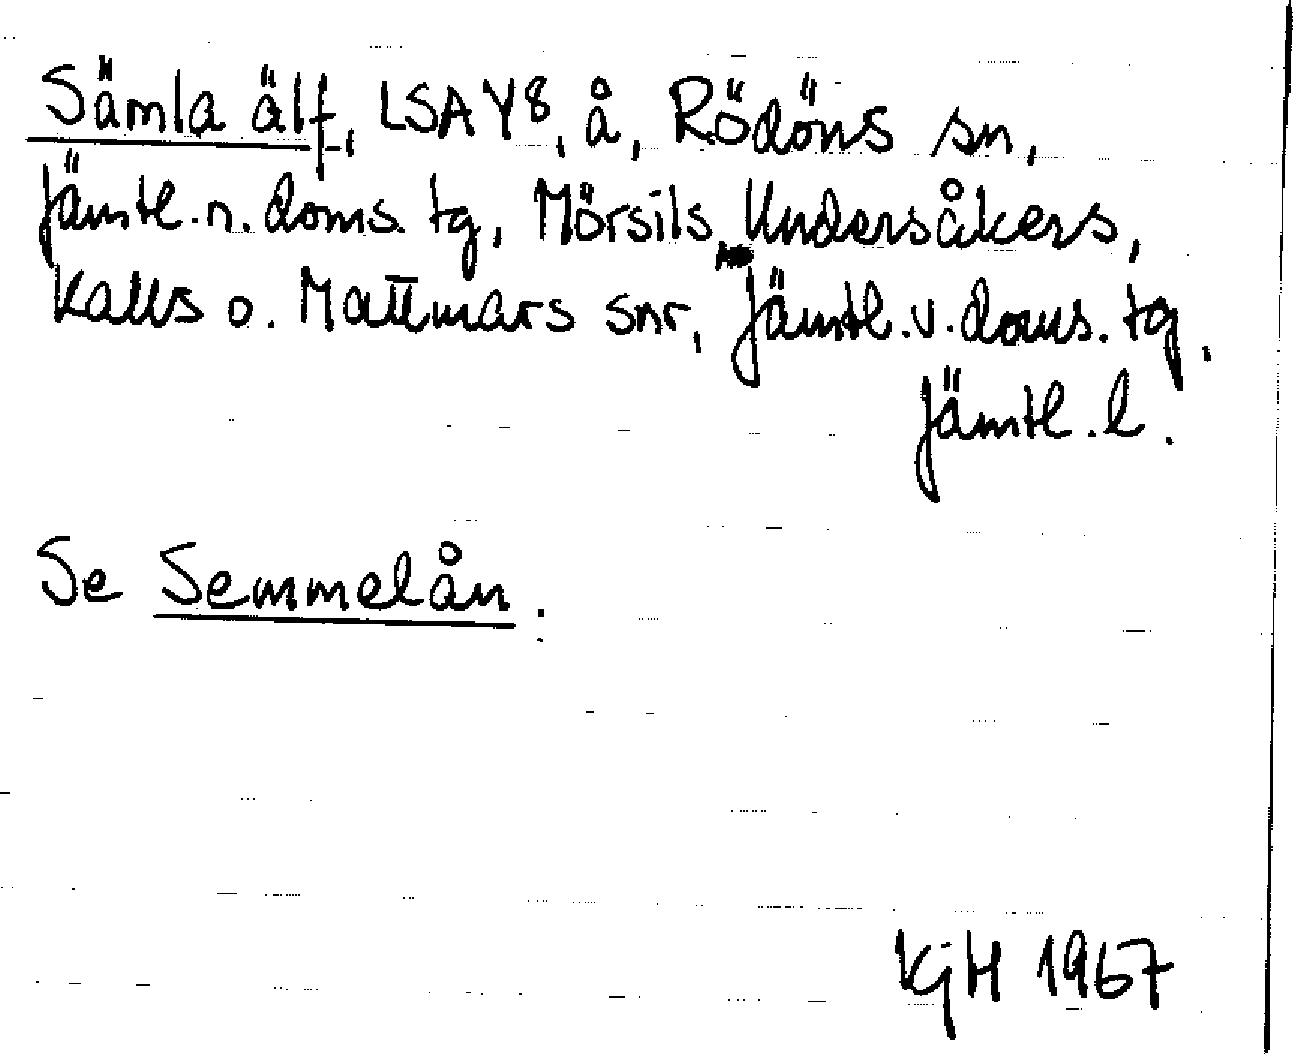 Sämla älf, LSA Y8, å, Rödöns sn,
Jämtl. n. doms. tg, Mörsils, Undersåkers,
Kalls o. Mattmars snr, Jämtl. v. doms. tg,
Jämtl. l.
Se Semmelån.
KjH 1967